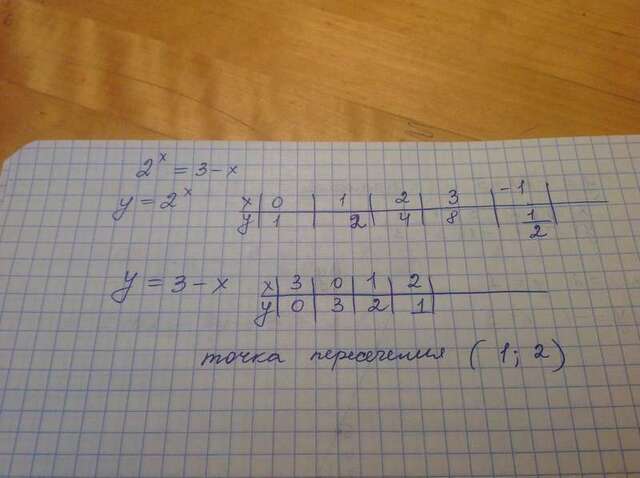 2^x = 3 - x
y = 2^x
x | 0 | 1 | 2 | 3 | -1 |
y | 1 | 2 | 4 | 8 | 1/2 |
y = 3 - x
x | 3 | 0 | 1 | 2 |
y | 0 | 3 | 2 | 1 |
точка пересечения ( 1; 2)